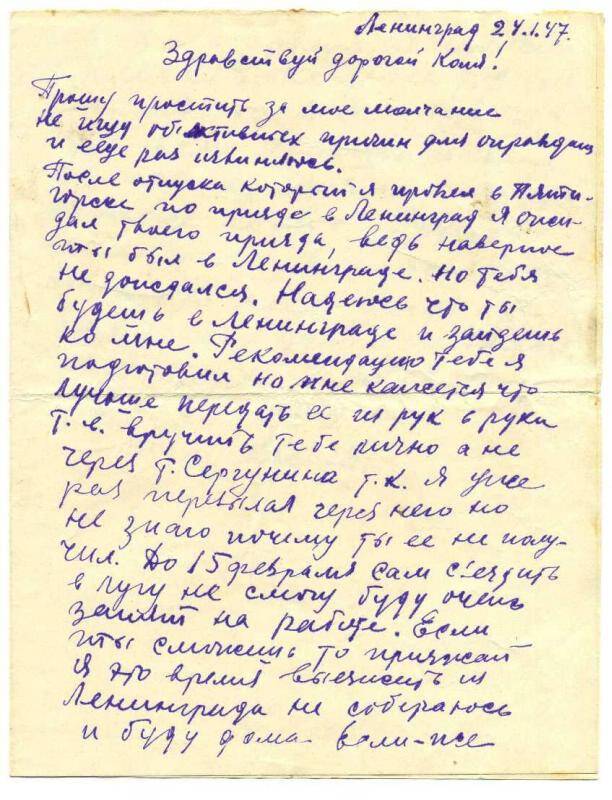 Ленинград 24.1.47.
Здравствуй дорогой Коля!
Прошу простить за мое молчание
не ищу объективных причин для оправдания
и еще раз извиняюсь.
После отпуска который я провел в Пяти-
горске по приезде в Ленинград я ожи-
дал твоего приезда, ведь наверное
ты был в Ленинграде. Но тебя
не дождался. Надеюсь что ты
будешь в Ленинграде и зайдешь
ко мне. Рекомендацию тебе я
подготовил но мне кажется что
лучше передать ее из рук в руки
т.е. вручить тебе лично а не
через т. Сергунина т.к. я уже
раз пересылал через него но
не знаю почему ты ее не полу-
чил. До 15 февраля сам с'ездить
в Лугу не смогу буду очень
занят на работе. Если
ты сможешь то приезжай
я это время выезжать из
Ленинграда не собираюсь
и буду дома. Если-же